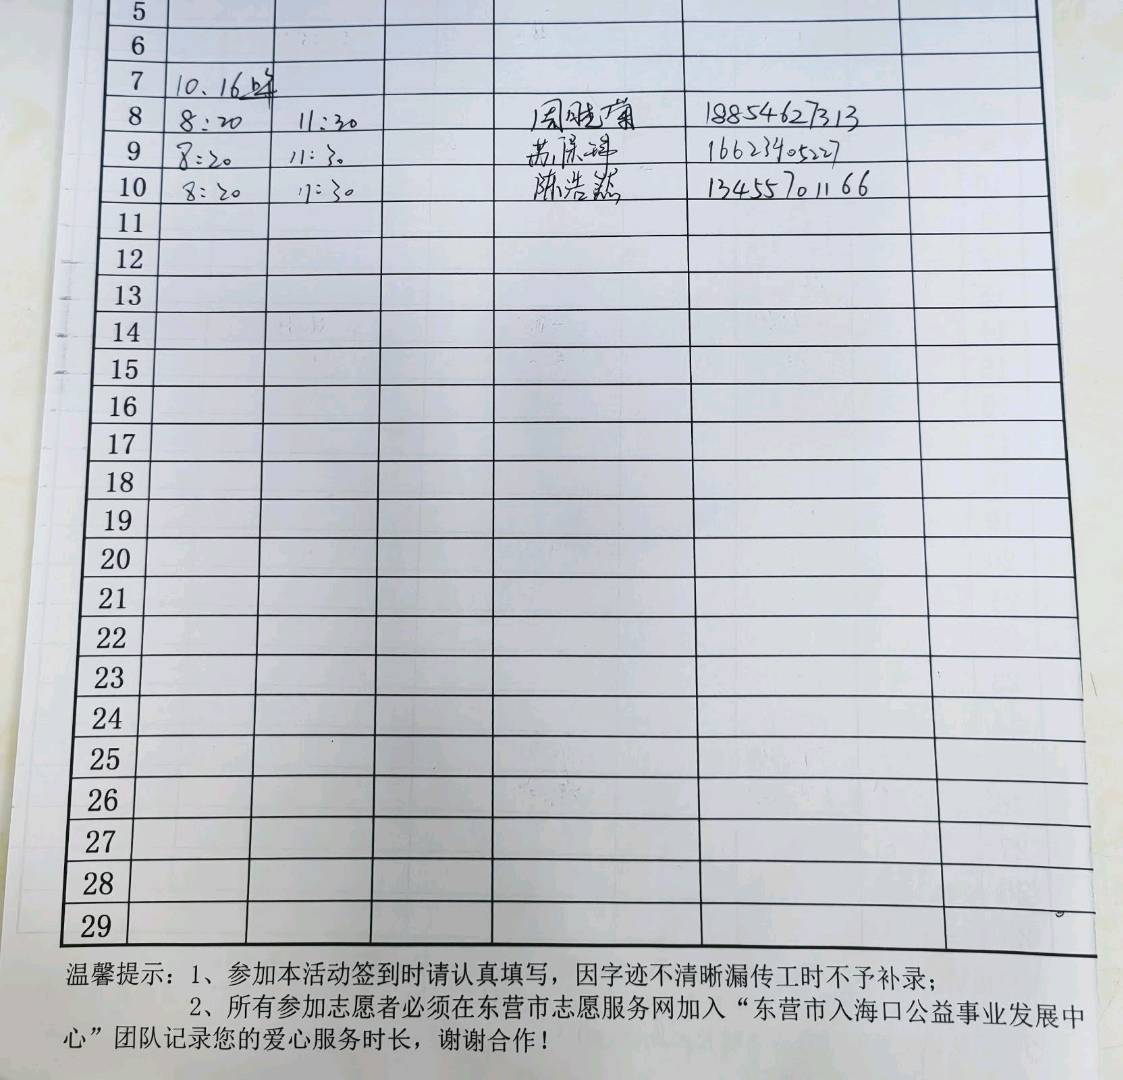 5
6
7 10、16
8 8:20 11:30 周晓菊 18854627313
9 8:20 11:30 苏保 16623405227
10 8:20 11:30 陈浩然 13455701166
11
12
13
14
15
16
17
18
19
20
21
22
23
24
25
26
27
28
29
温馨提示：1、参加本活动签到时请认真填写，因字迹不清晰漏传工时不予补录；
2、所有参加志愿者必须在东营市志愿服务网加入“东营市入海口公益事业发展中
心”团队记录您的爱心服务时长，谢谢合作！